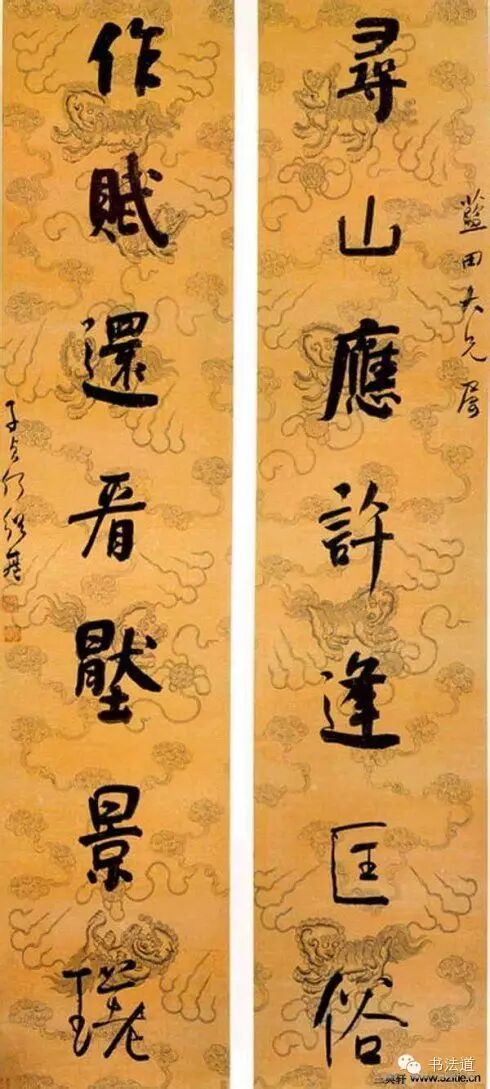 尋山應許逢匡俗
藍田大兄屬
作賦還看壓景瑳
子貞何紹基
书法道